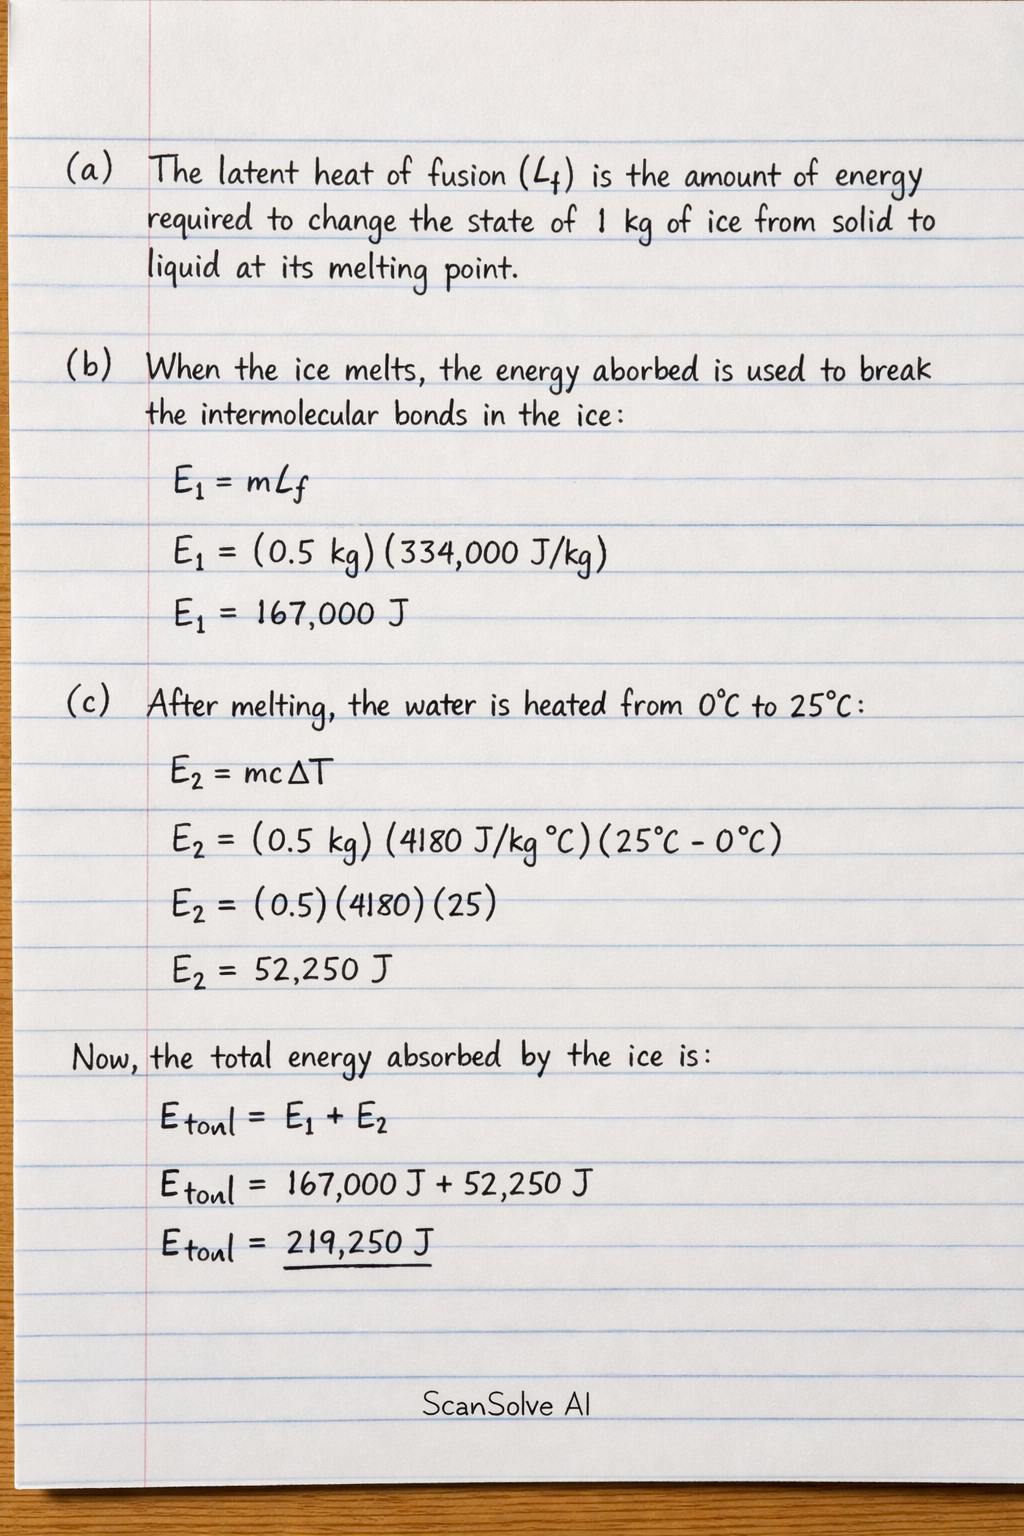 (a) The latent heat of fusion (Lf) is the amount of energy
required to change the state of 1 kg of ice from solid to
liquid at its melting point.
(b) When the ice melts, the energy aborbed is used to break
the intermolecular bonds in the ice:
E₁ = mLf
E₁ = (0.5 kg) (334,000 J/kg)
E₁ = 167,000 J
(c) After melting, the water is heated from 0°C to 25°C:
E₂ = mcΔT
E₂ = (0.5 kg) (4180 J/kg°C) (25°C - 0°C)
E₂ = (0.5) (4180) (25)
E₂ = 52,250 J
Now, the total energy absorbed by the ice is:
Etonl = E₁ + E₂
Etonl = 167,000 J + 52,250 J
Etonl = 219,250 J
ScanSolve AI